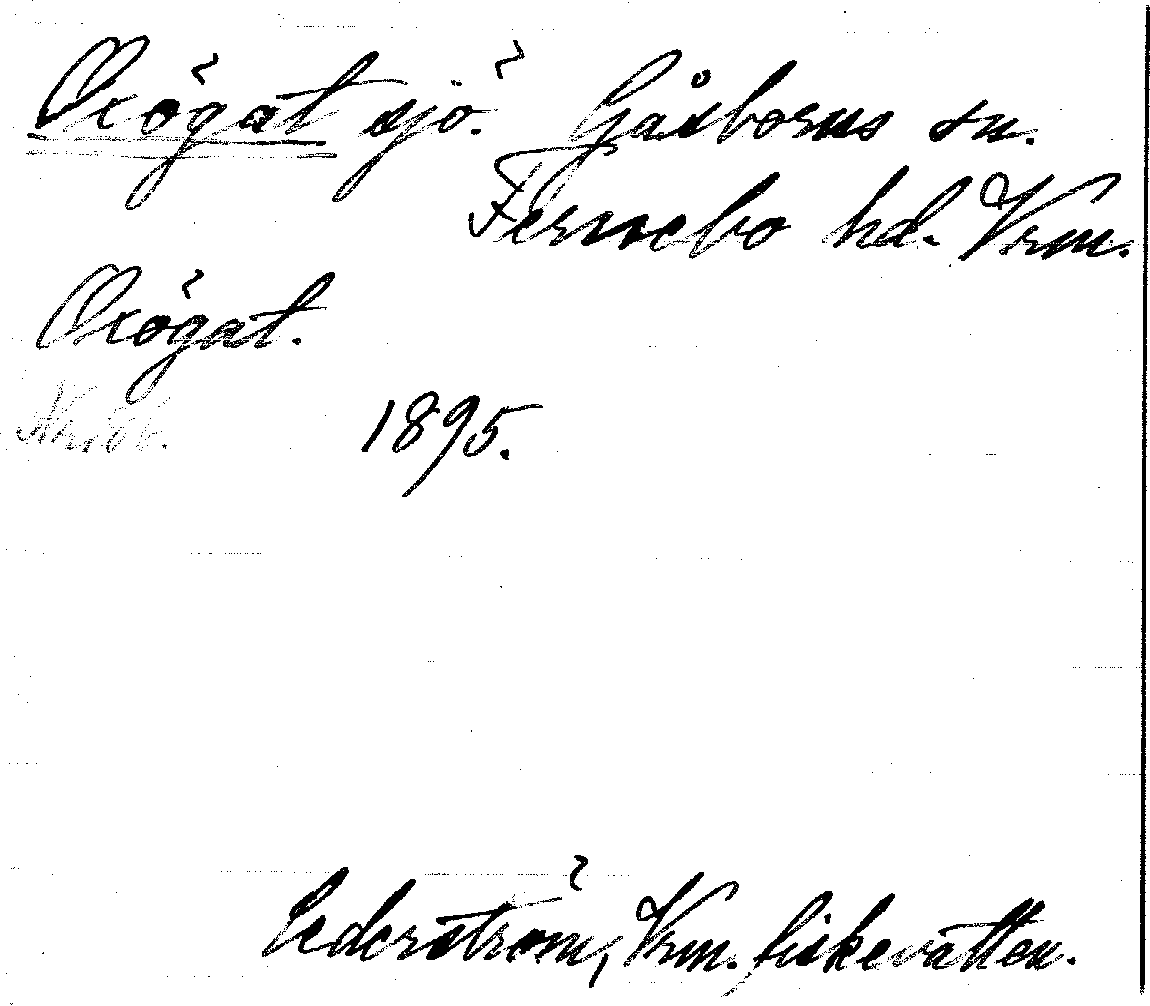 Oxögat sjö. Gåsborns sn.
Fernebo hd. Vrm.
Oxögat.
1895.
Cederström, Vrm. fiskevatten.